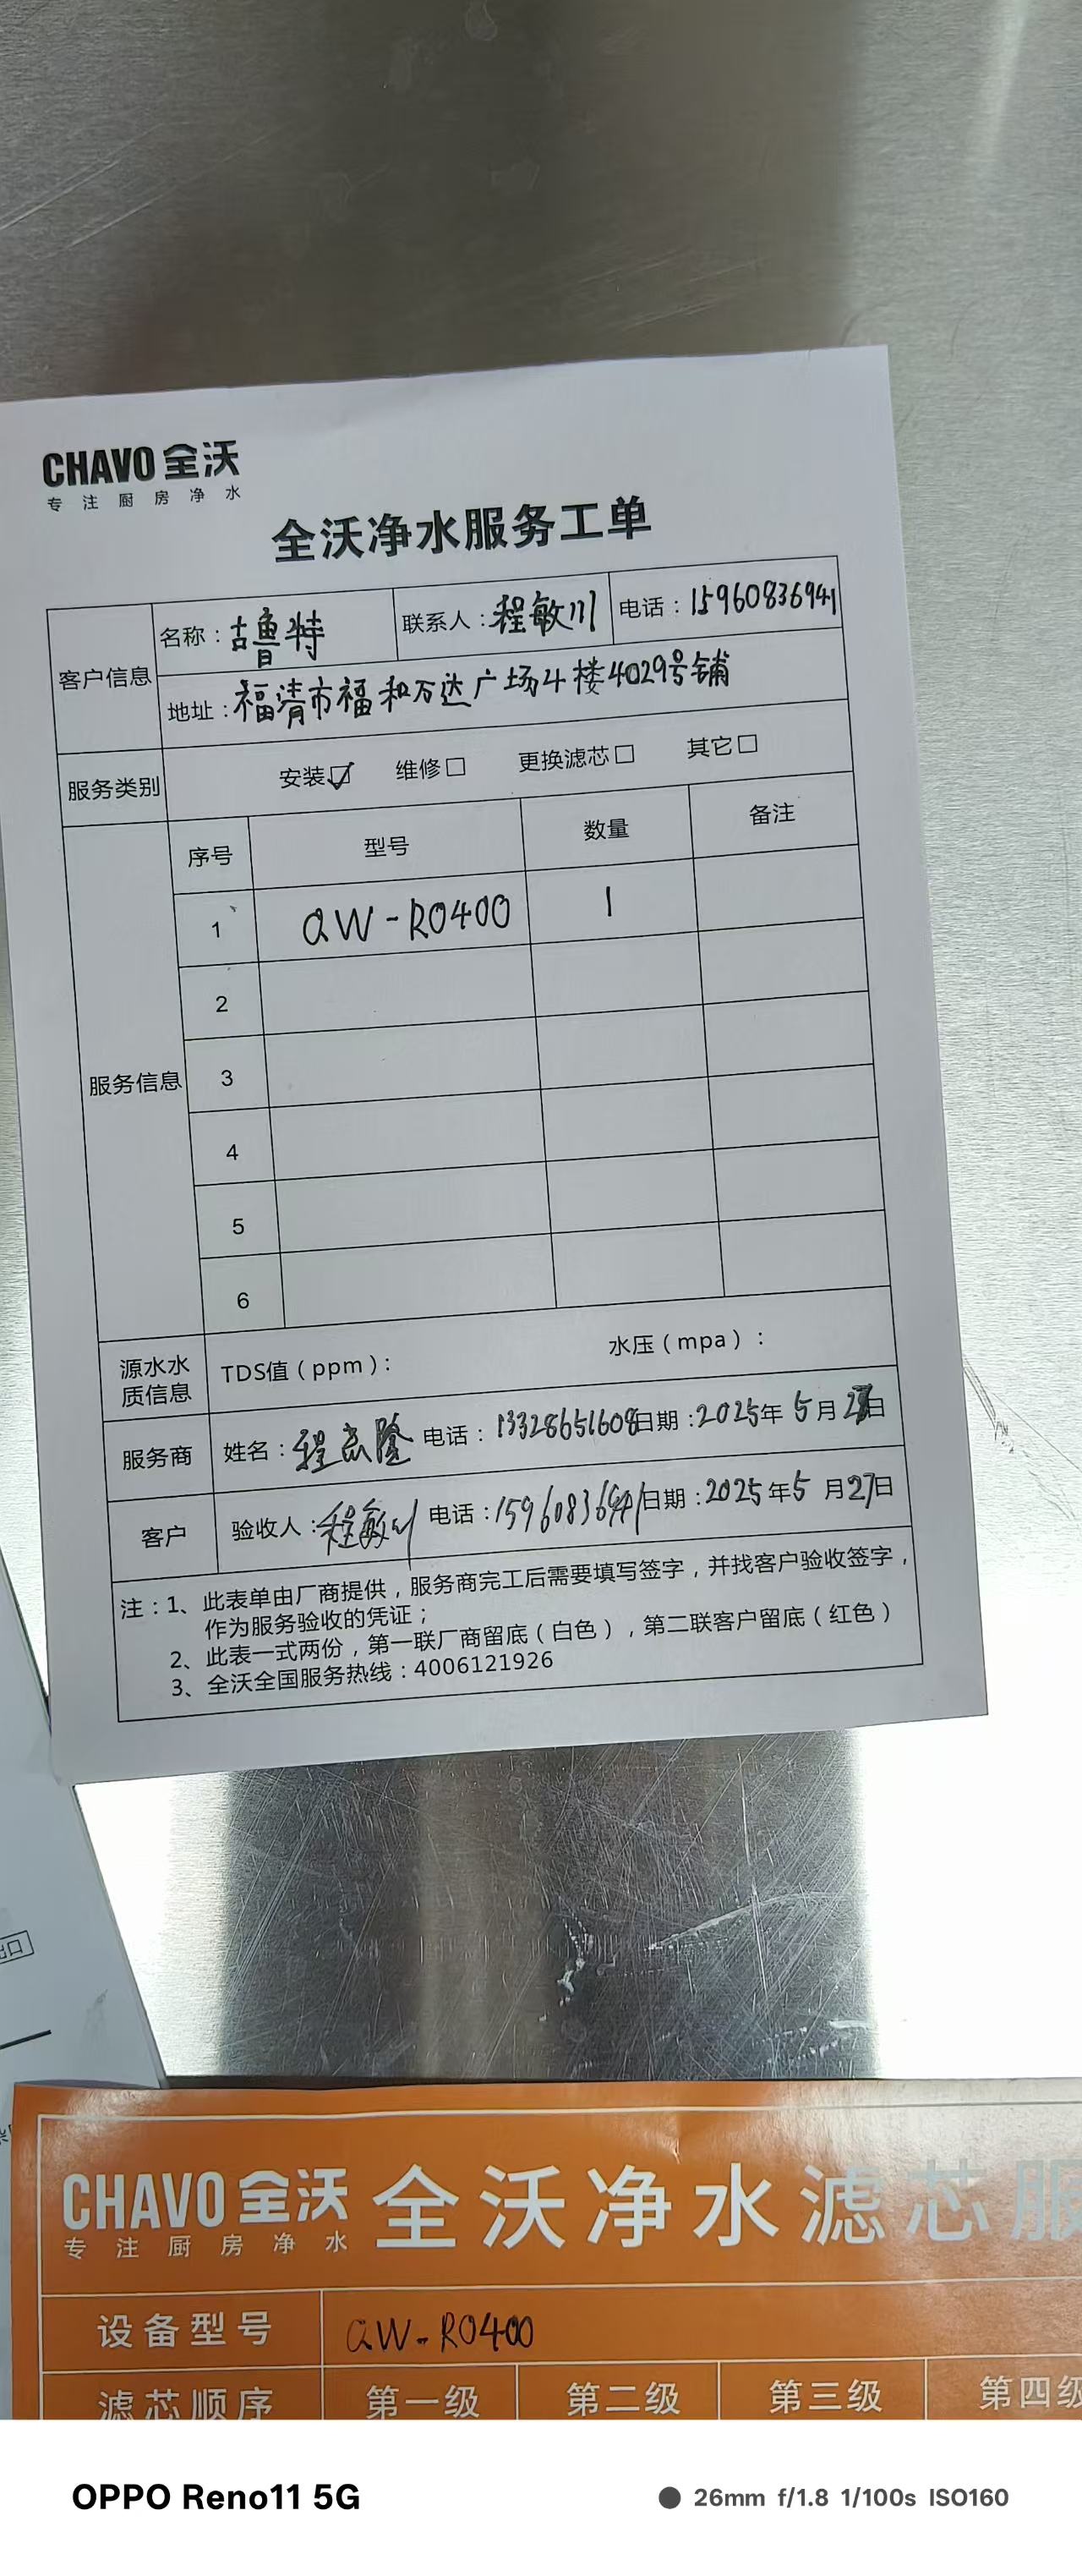 CHAVO 全沃
专注厨房净水
全沃净水服务工单
客户信息 名称：古鲁特 联系人：程敏川 电话：15960836941
地址：福清市福和万达广场4楼4029号铺
服务类别 安装☑ 维修□ 更换滤芯□ 其它□
服务信息 序号 型号 数量 备注
1 QW-RO400 1
2
3
4
5
6
源水水质信息 TDS值（ppm）： 水压（mpa）：
服务商 姓名：程 隆 电话：13328651608 日期：2025年5月 日
客户 验收人：程敏川 电话：15960836941 日期：2025年5月27日
注：1、此表单由厂商提供，服务商完工后需要填写签字，并找客户验收签字，
作为服务验收的凭证；
2、此表一式两份，第一联厂商留底（白色），第二联客户留底（红色）
3、全沃全国服务热线：4006121926
CHAVO 全沃 全沃净水滤芯服
专注厨房净水
设备型号 QW-RO400
滤芯顺序 第一级 第二级 第三级 第四级
OPPO Reno11 5G
26mm f/1.8 1/100s ISO160